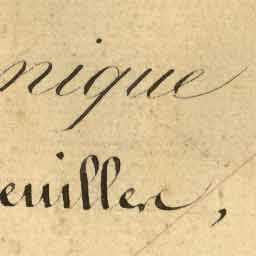 nique
euillen,